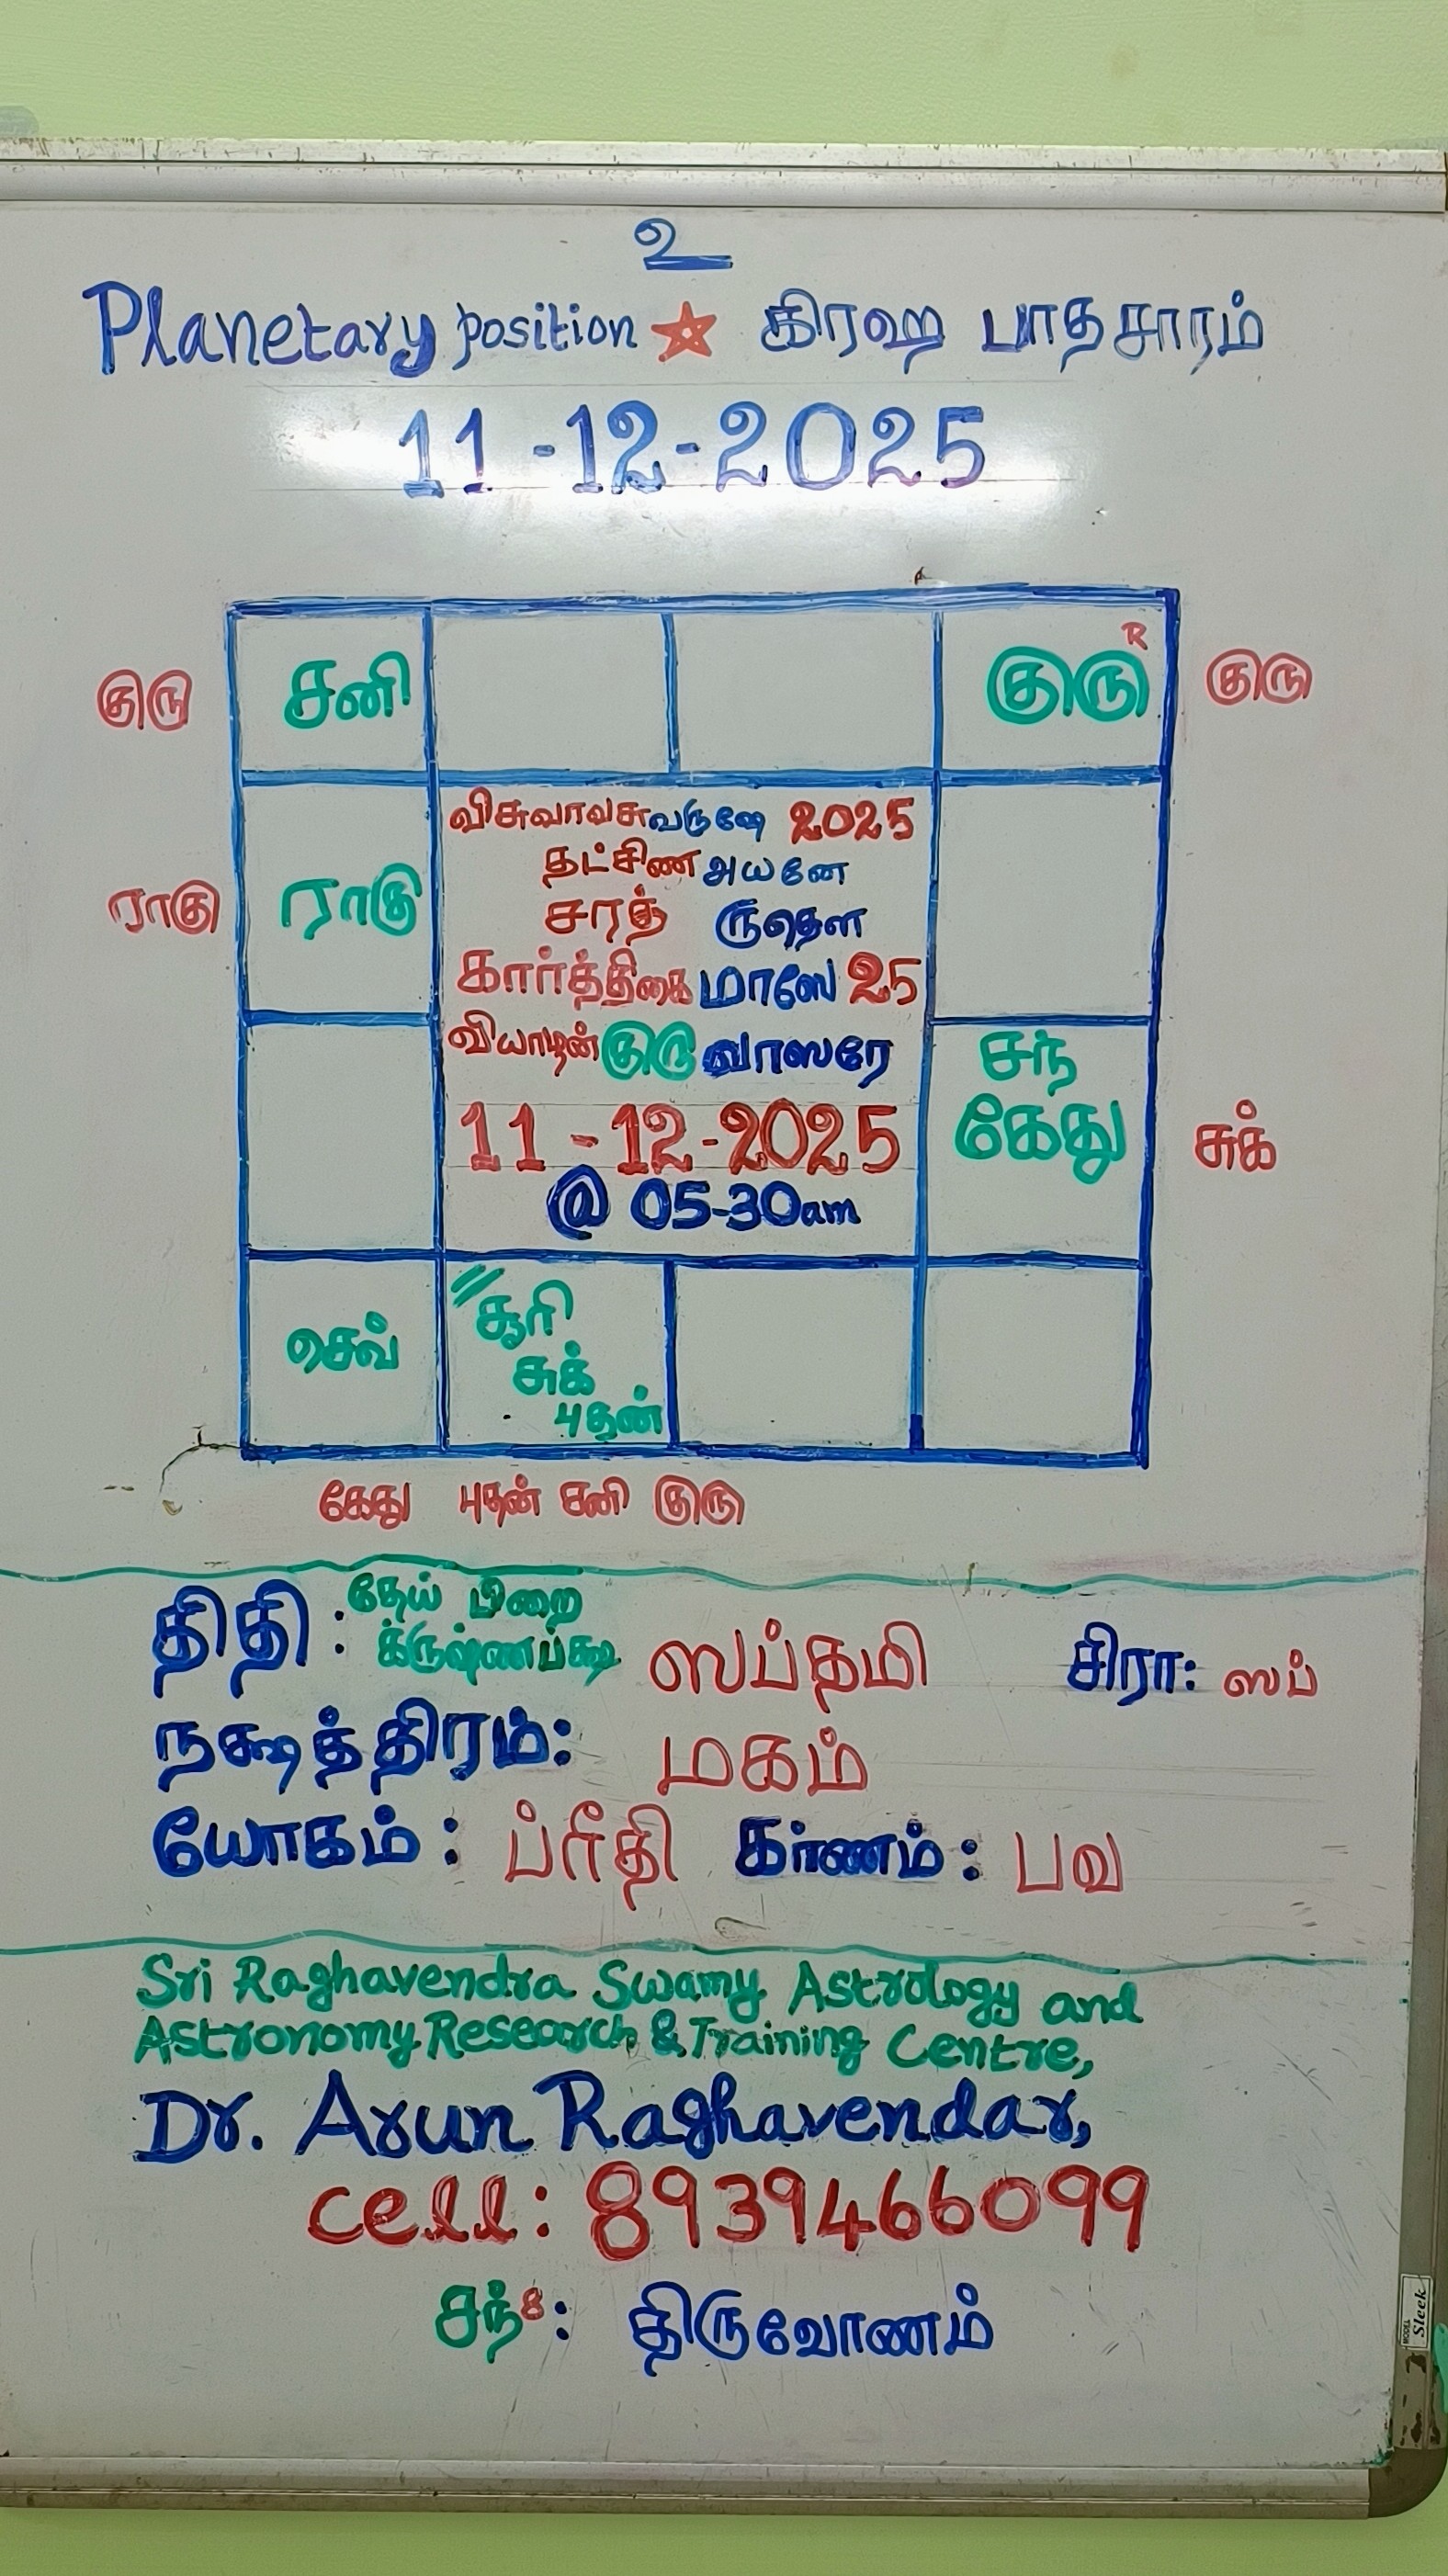 உ
Planetary position ★ கிரஹ பாதசாரம்
11-12-2025
குரு சனி குரு R குரு
விசுவாவசுவருஷே 2025
தட்சிண அயனே
ராகு ராகு சரத் ருதௌ
கார்த்திகை மாஸே 25
வியாழன் குரு வாஸரே
சந்
கேது சுக்
11-12-2025
@ 05-30am
செவ் சூரி
சுக்
புதன்
கேது புதன் சனி குரு
திதி: தேய் பிறை
க்ருஷ்ணபக்ஷ ஸப்தமி சிரா: ஸப்
நக்ஷத்திரம்: மகம்
யோகம்: ப்ரீதி கர்ணம்: பவ
Sri Raghavendra Swamy Astrology and
Astronomy Research & Training Centre,
Dr. Arun Raghavendar,
cell: 8939466099
சந்8: திருவோணம்
Sleek